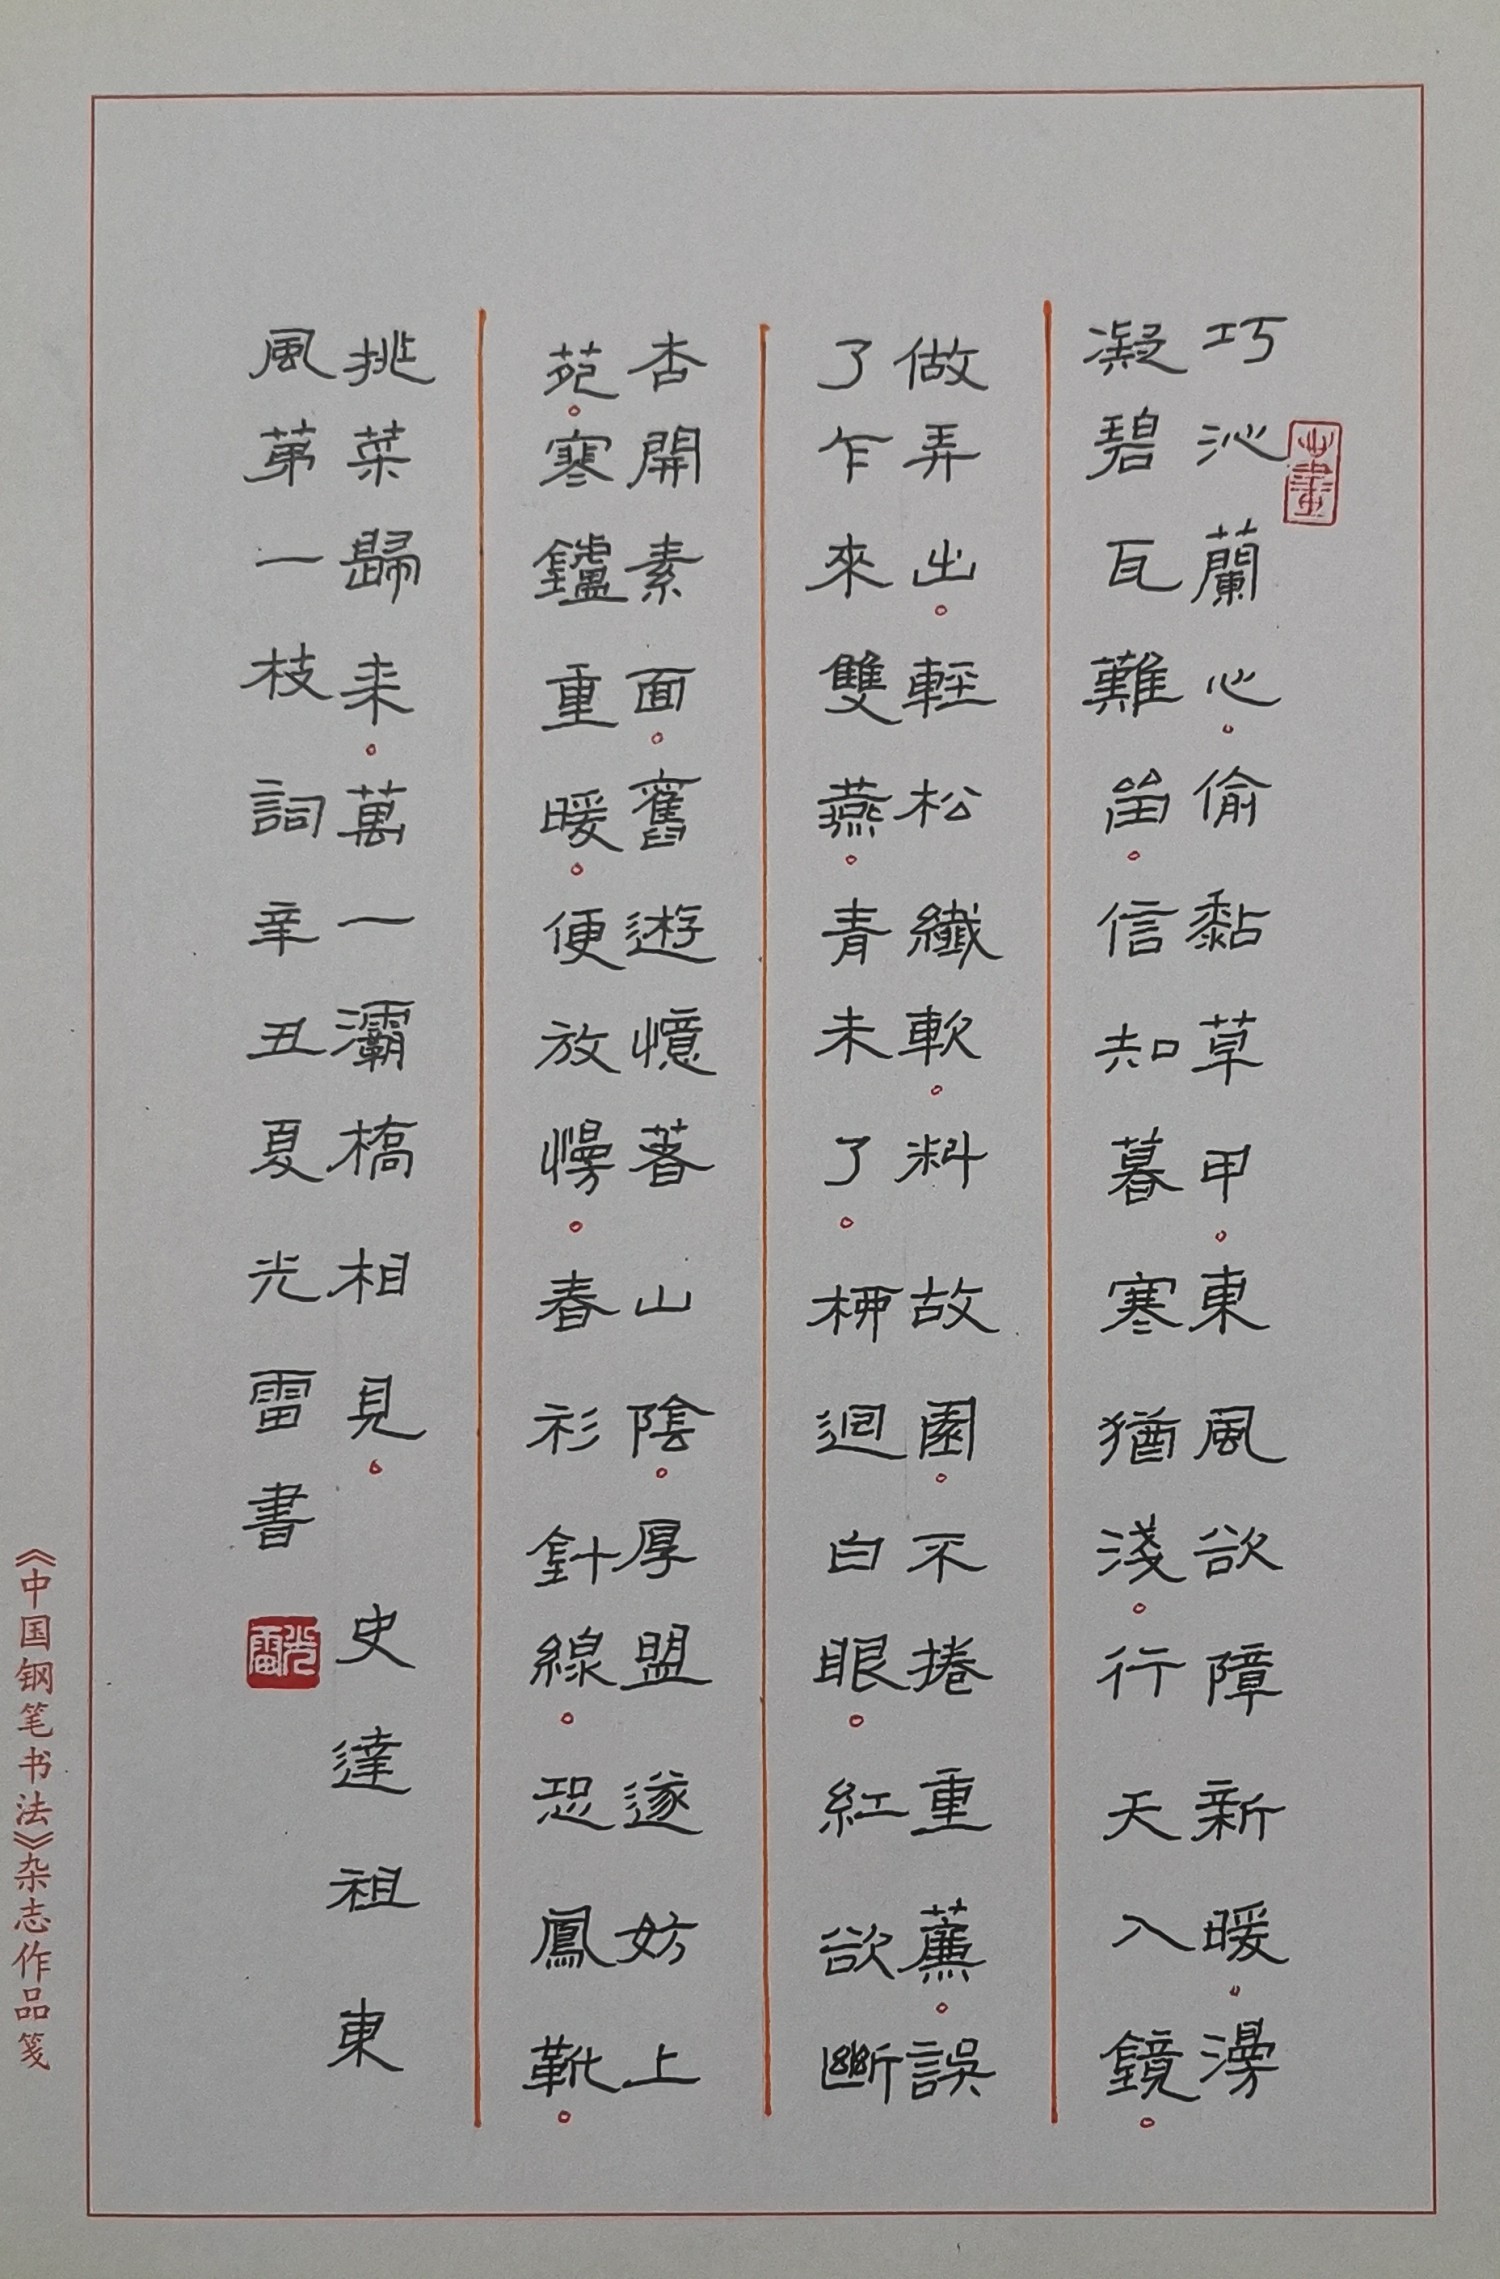 巧沁蘭心。偷黏草甲。東風欲障新暖。漫
凝碧瓦難留。信知暮寒猶淺。行天入鏡。
做弄出。輕松纖軟。料故園。不捲重簾。誤
了乍來雙燕。青未了。柳迴白眼。紅欲斷
杏開素面。舊遊憶著山陰。厚盟遂妨上
苑。寒鑪重暖。便放慢。春衫針線。恐鳳靴。
挑菜歸來。萬一灞橋相見。史達祖東
風第一枝詞辛丑夏光雷書
光雷
《中国钢笔书法》杂志作品笺